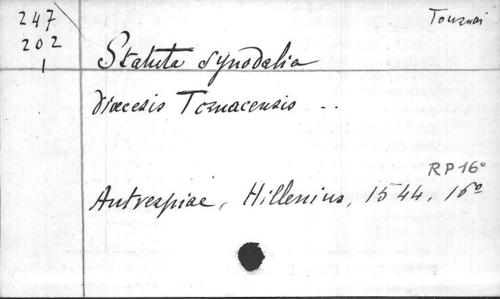 247
202
1
Tournai
Statuta Synodalia
diœcesis Tornacensis ...
RP 16°
Antverpiae, Hillenius, 1544. 16°